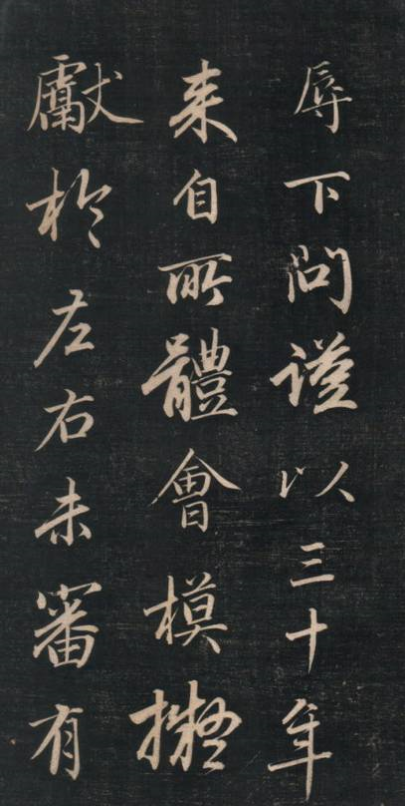 辱下問謹以三十年
来自所體會模擬
獻於左右未審有